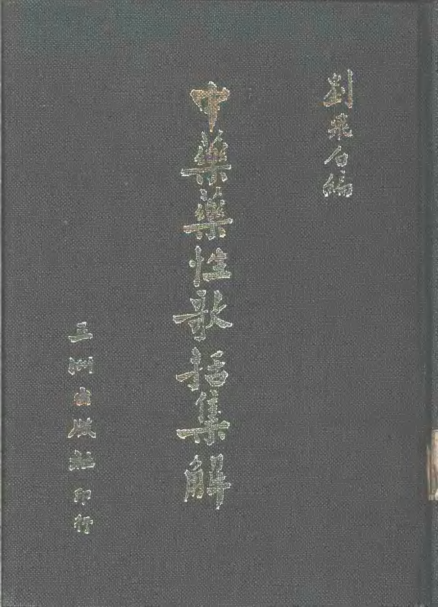 劉飛白編
中藥藥性歌括集解
五洲出版社印行